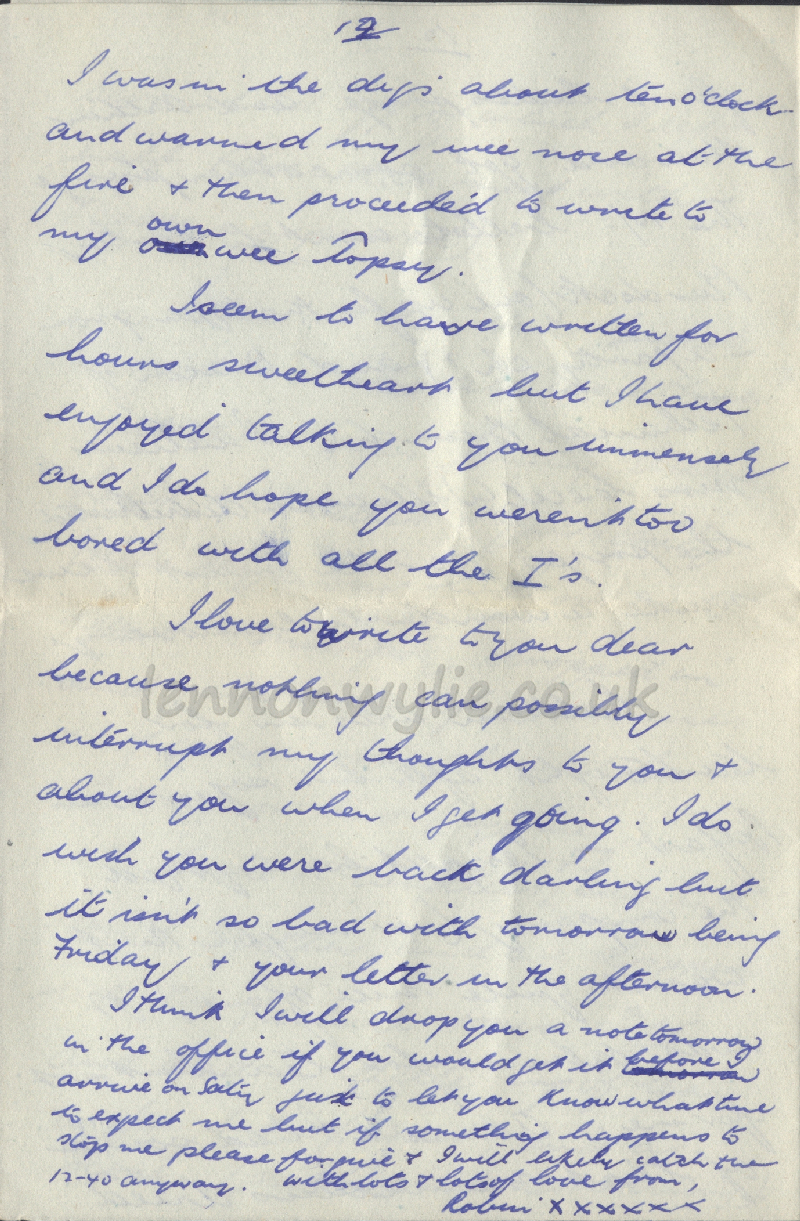 12
I was in the digs about ten o'clock
and warmed my wee nose at the
fire & then proceeded to write to
my own wee Topsy.
I seem to have written for
hours sweetheart but I have
enjoyed talking to you immensely
and I do hope you weren't too
bored with all the I's.
I love to write to you dear
because nothing can possibly
lennonwylie.co.uk
interrupt my thoughts to you &
about you when I get going. I do
wish you were back darling but
it isn't so bad with tomorrow being
Friday & your letter in the afternoon.
I think I will drop you a note tomorrow
in the office if you would get it before I
arrive on Satdy just to let you know what time
to expect me but if something happens to
stop me please forgive & I will likely catch the
12-40 anyway. With lots & lots of love from,
Robin x x x x x x